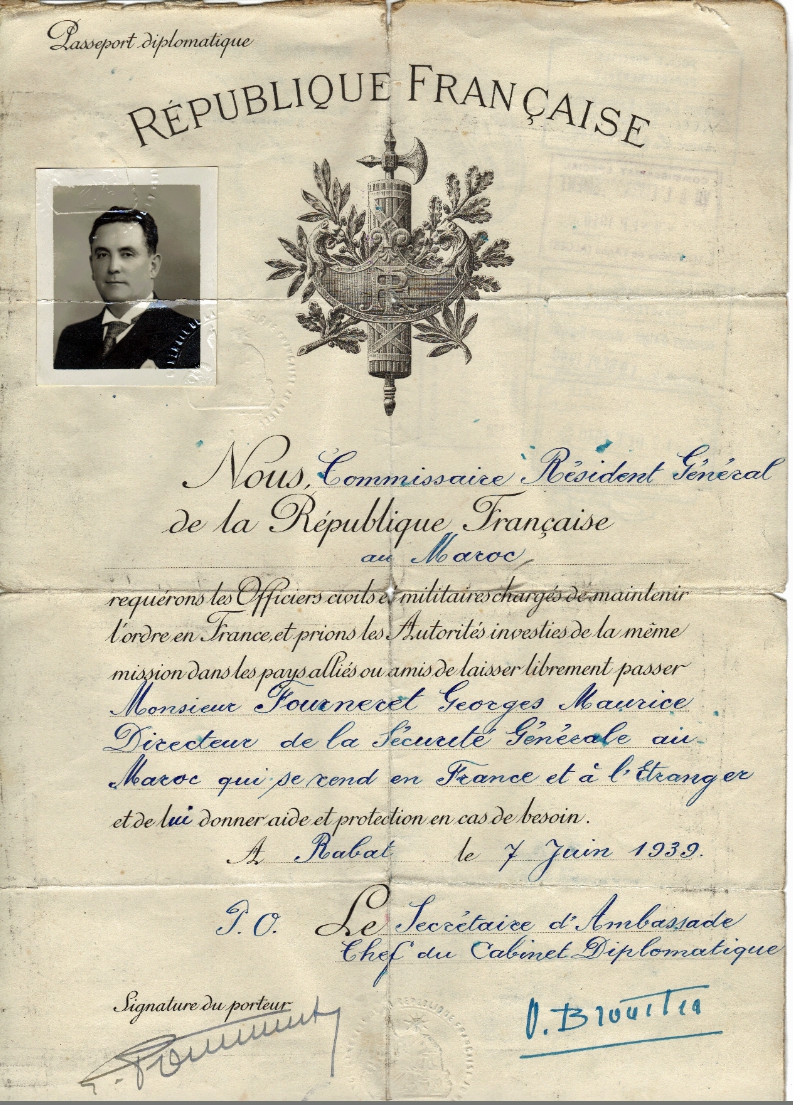 Passeport diplomatique
RÉPUBLIQUE FRANÇAISE
RF
Nous, Commissaire Résident Général
de la République Française
au Maroc
requérons les Officiers civils et militaires chargés de maintenir
l'ordre en France, et prions les Autorités investies de la même
mission dans les pays alliés ou amis de laisser librement passer
Monsieur Fourneret Georges Maurice
Directeur de la Sécurité Générale au
Maroc qui se rend en France et à l'Etranger
et de lui donner aide et protection en cas de besoin.
A Rabat le 7 Juin 1939.
P.O. Le Secrétaire d'Ambassade
Chef du Cabinet Diplomatique
Signature du porteur